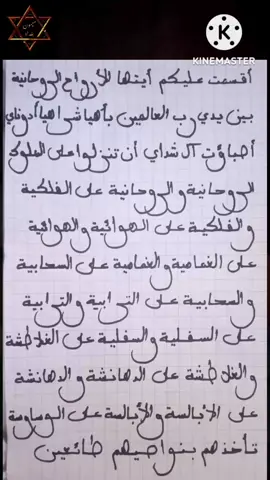 KINEMASTER
أقسمت عليكم أيتها الأرواح الروحانية
بين يدي رب العالمين بأهيا شراهيا أدوناي
أصباؤت آل شداي أن تنزلوا على الملوك
الروحانية والروحانية على الفلكية
والفلكية على الهوائية والهوائية
على الغمامية والغمامية على السحابية
والسحابية على الترابية والترابية
على السفلية والسفلية على الغلاطشة
والغلاطشة على الدهانشة والدهانشة
على الأبالسة والأبالسة على الوساوسة
تأخذهم بنواصيهم طائعين